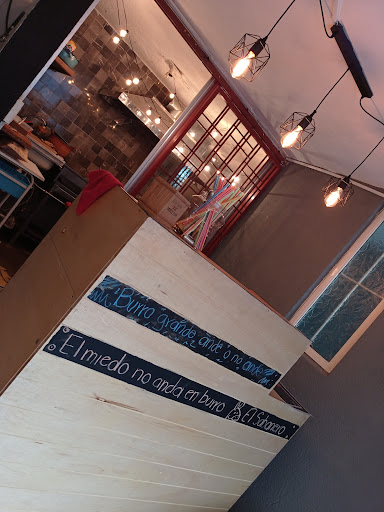 Burro grande ande o no ande
El miedo no anda en burro El Sabanero